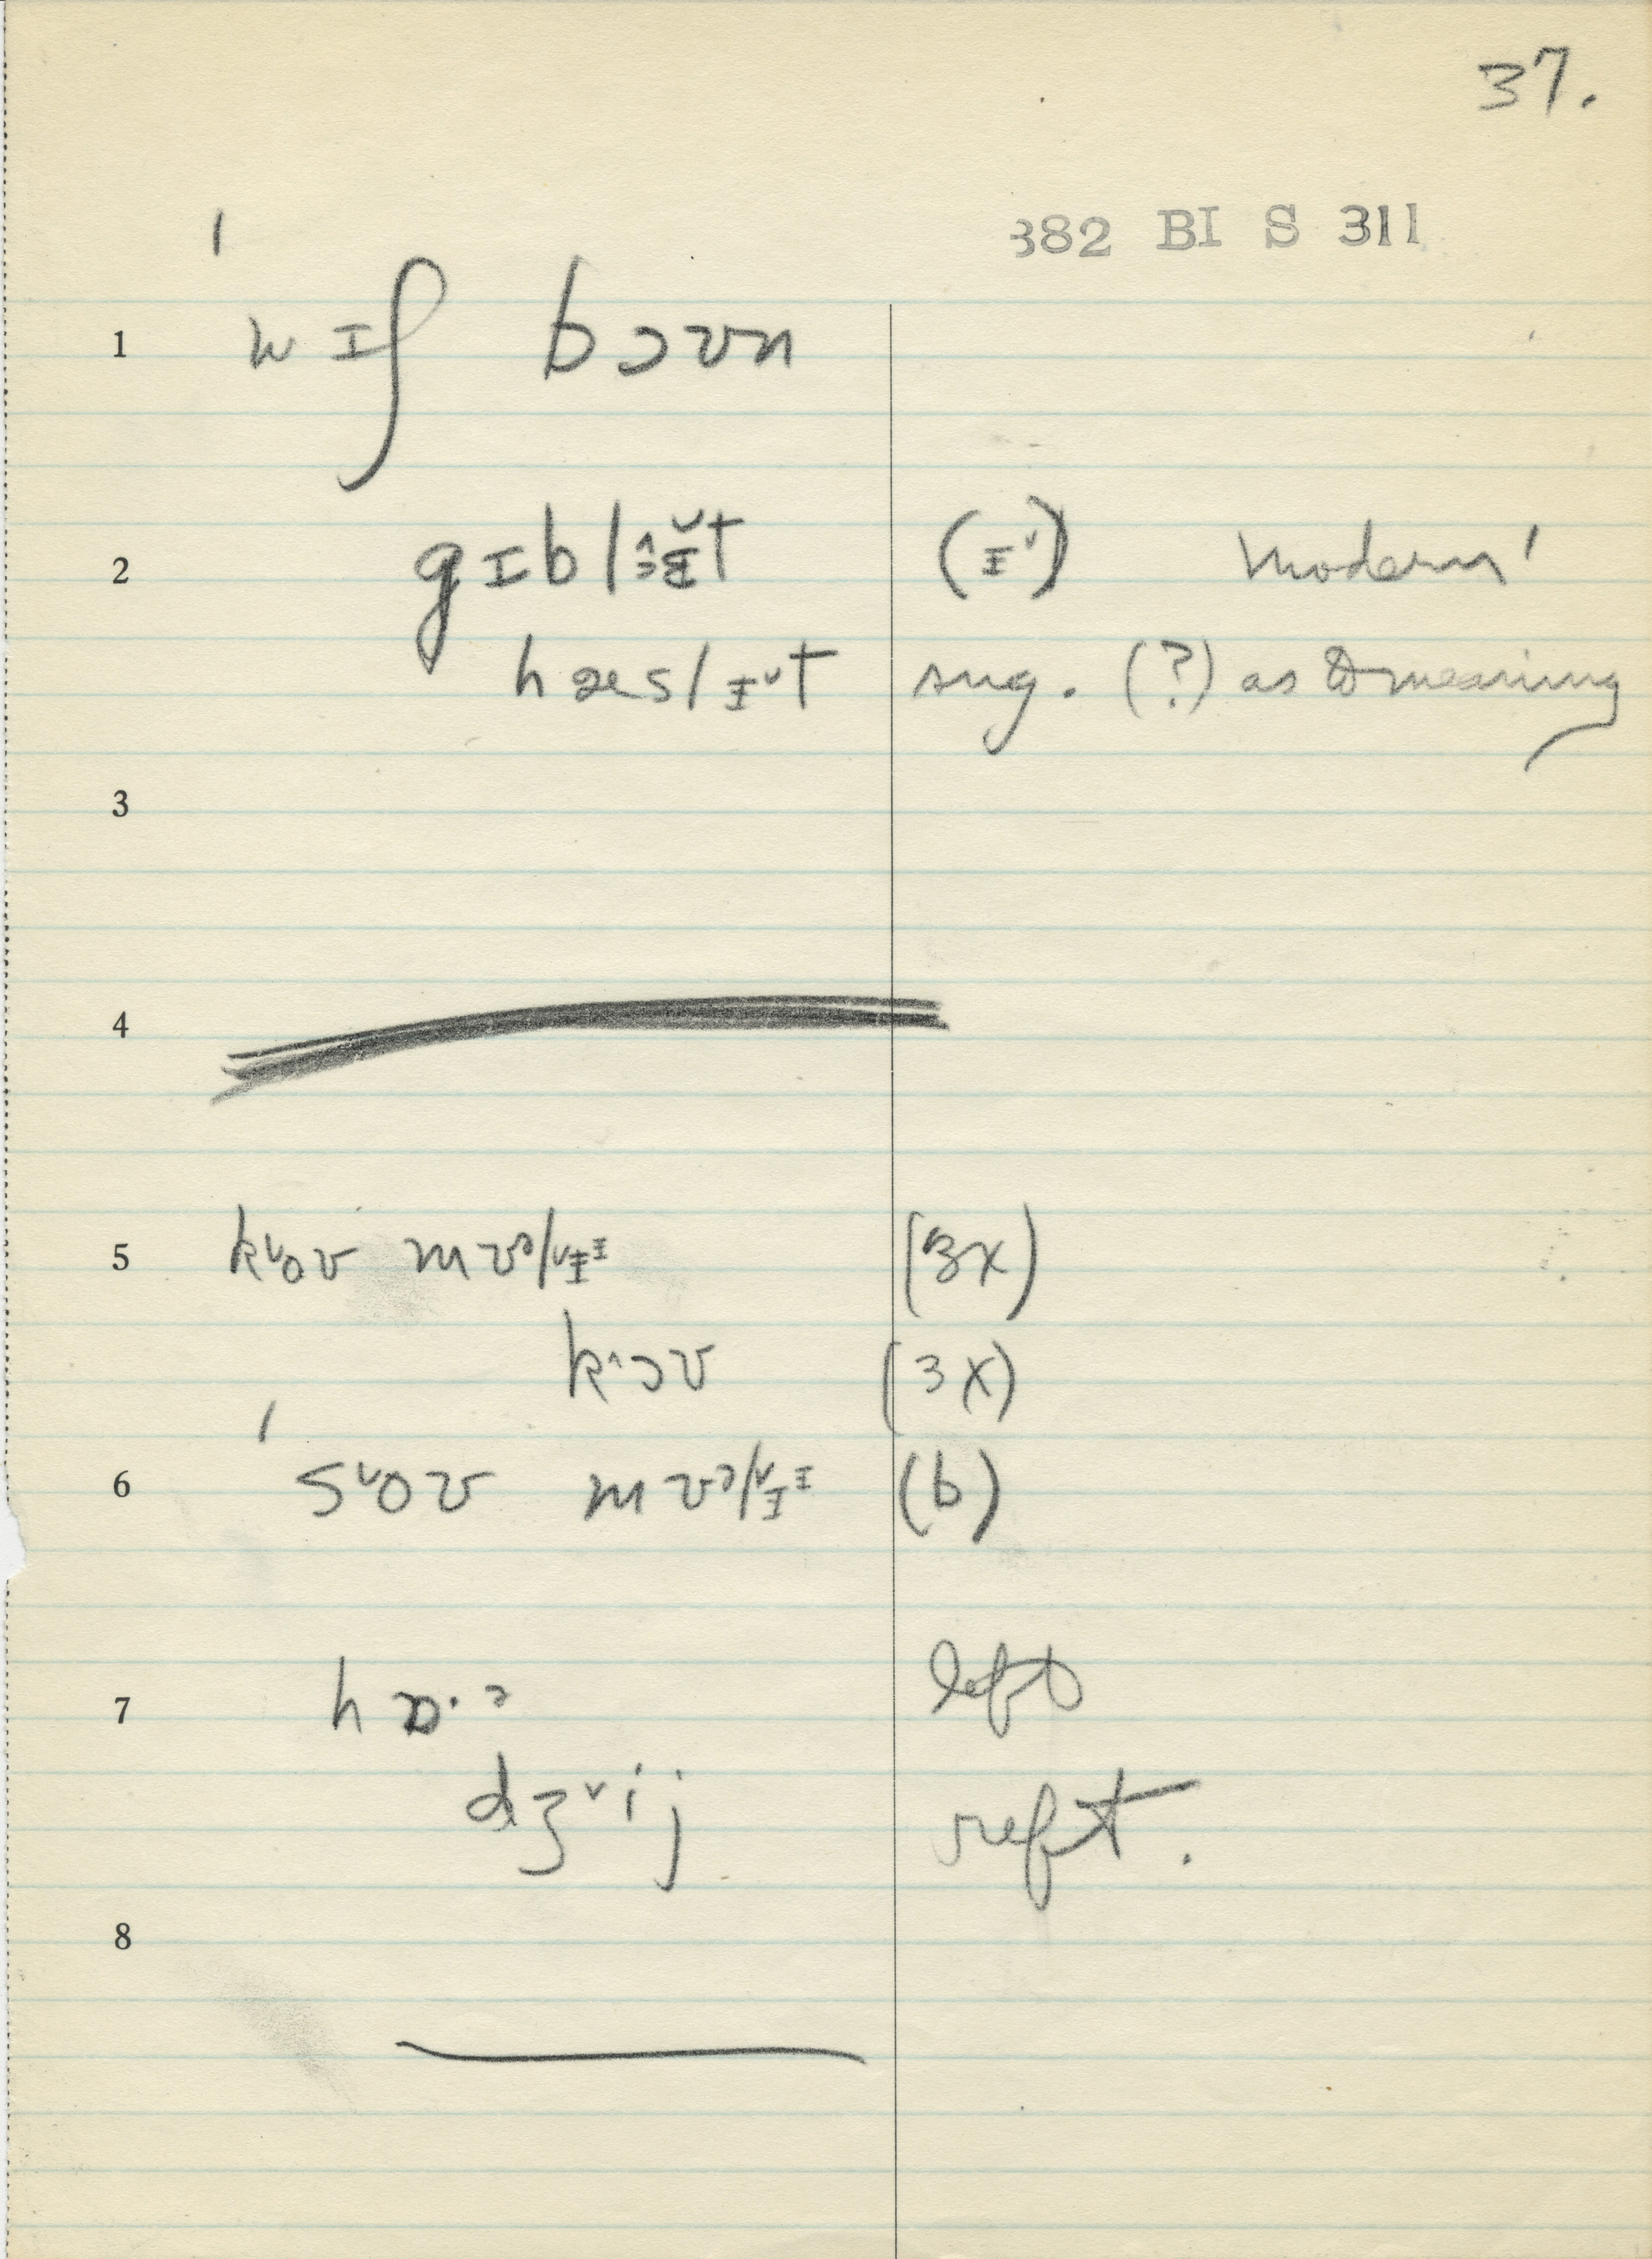 37.
382 BI S 311
1 wɪʃ bɔʊn
2 gɪblɪt (ɪ˅) modern'
hæslɪ˅t sug. (?) as to meaning
3
4
5 k˅oʊ (3x)
k^ɔʊ (3x)
6 s˅oʊ (b)
7 left
dʒ˅ij reft.
8